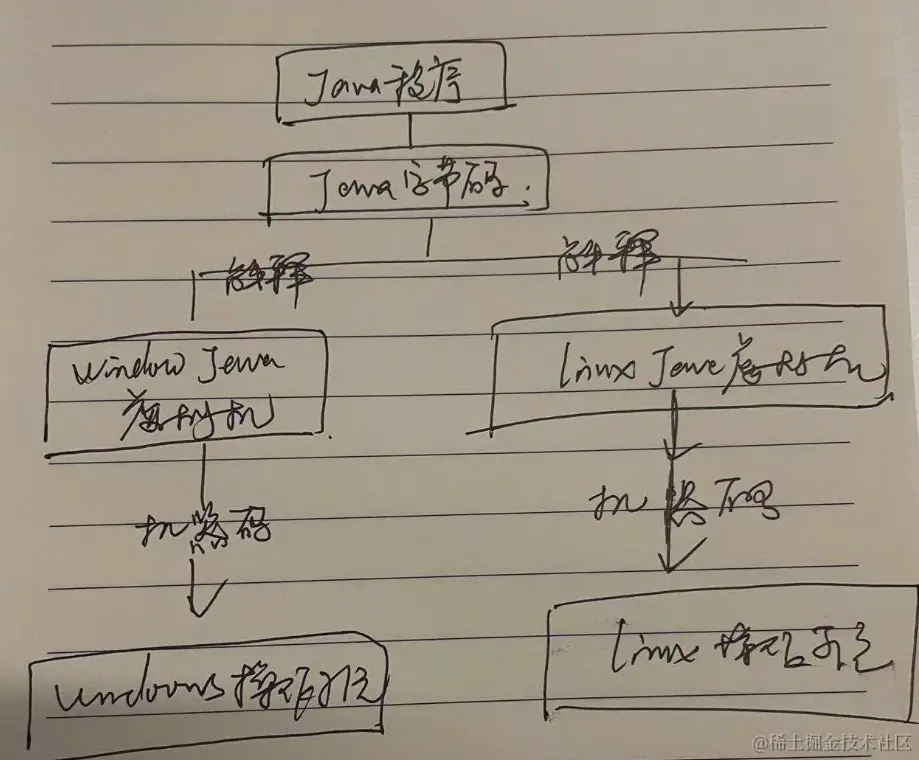 Java程序
Java字节码.
解释
解释
Window Java
虚拟机
linux Java虚拟机
机器码
机器码
Windows操作系统
linux 操作系统
@稀土掘金技术社区